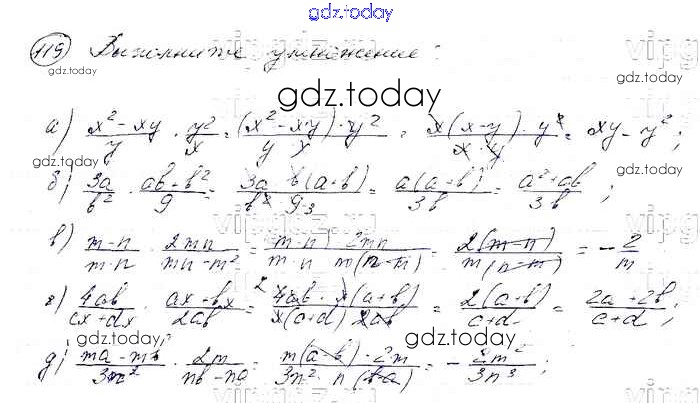 gdz.today
119 Выполните умножение:
gdz.today
gdz.today
а) (x² - xy)/y · y²/x = ((x² - xy) · y²)/(y x) = (x(x-y) · y²)/(x y) = xy - y²;
gdz.today
gdz.today
б) 3a/b² · (ab+b²)/9 = (3a b(a+b))/(b² 9 3) = (a(a+b))/(3b) = (a²+ab)/(3b);
в) (m-n)/(m·n) · 2mn/(mn-m²) = ((m-n) 2mn)/(m·n m(n-m)) = (2(m-n))/(m(n-m)) = -2/m
г) 4ab/(cx+dx) · (ax+bx)/(2ab) = (2 4ab · x(a+b))/(x(c+d) 2ab) = (2(a+b))/(c+d) = (2a+2b)/(c+d);
gdz.today
gdz.today
д) (ma-mb)/(3n²) · 2m/(nb-na) = (m(a-b) · 2m)/(3n² n(b-a)) = -2m²/(3n³);
gdz.today
gdz.today